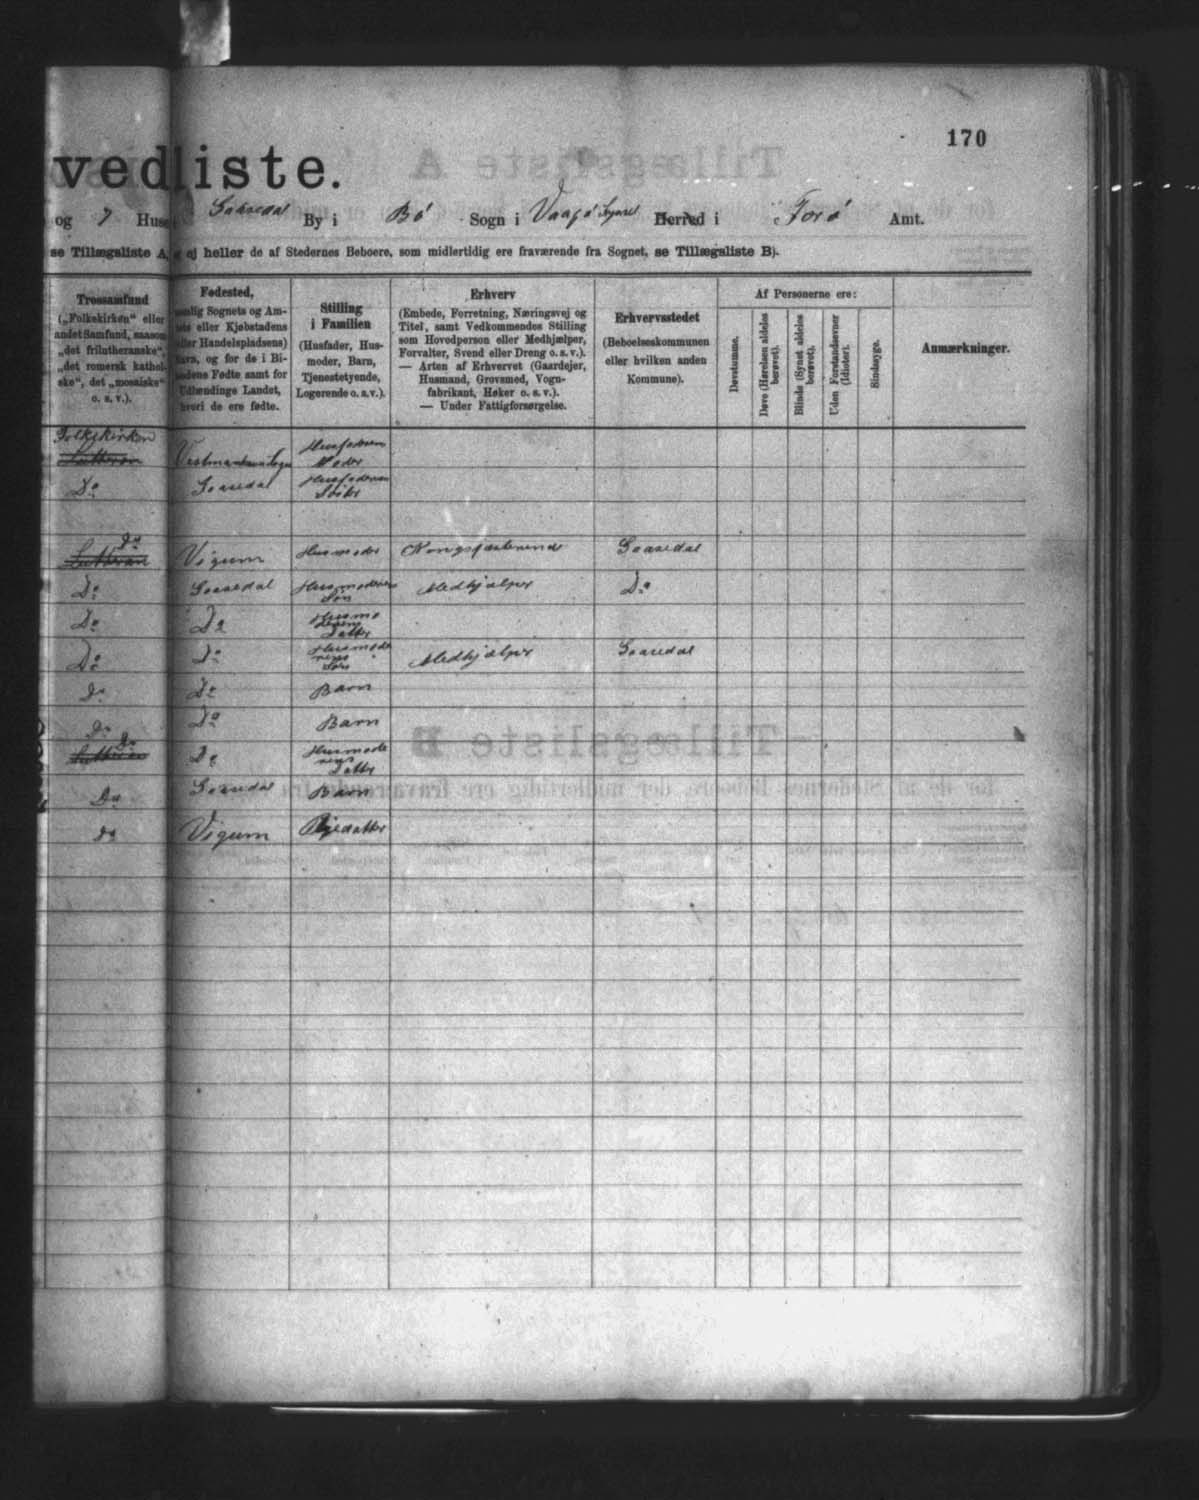 170
vedliste.
og 7 Huse Gaasedal By i Bø Sogn i Vaagø Syssel Herred i Færø Amt.
se Tillægsliste A, ej heller de af Stedernes Beboere, som midlertidig ere fraværende fra Sognet, se Tillægsliste B).
Trossamfund
(„Folkekirken" eller
andet Samfund, saasom
„det frilutheranske",
„det romersk kathol-
ske", det „mosaiske"
o. s. v.).
Fødested,
Sognets og Am-
eller Kjøbstadens
Handelspladsens)
og for de i Bi-
Fødte samt for
Udlændinge Landet,
hvori de ere fødte.
Stilling
i Familien
(Husfader, Hus-
moder, Barn,
Tjenestetyende,
Logerende o. s. v.).
Erhverv
(Embede, Forretning, Næringsvej og
Titel, samt Vedkommendes Stilling
som Hovedperson eller Medhjælper,
Forvalter, Svend eller Dreng o. s. v.).
— Arten af Erhvervet (Gaardejer,
Husmand, Grovsmed, Vogn-
fabrikant, Høker o. s. v.).
— Under Fattigforsørgelse.
Erhvervsstedet
(Beboelseskommunen
eller hvilken anden
Kommune).
Af Personerne ere:
Døvstumme.
Døve (Hørelsen aldeles
berøvet).
Blinde (Synet aldeles
berøvet).
Uden Forstandsevner
(Idioter).
Sindssyge.
Anmærkninger.
Folkekirken
Lutheran Vestmanhavn Sogn Husfaderens Moder
Do Gaasedal Husfaderens Søster
Do
Lutheran Vigum Husmoder Kongsfæsterinde Gaasedal
Do Gaasedal Husmoderens Søn Medhjælper Do
Do Do Husmoderens Datter
Do Do Husmoderens Søn Medhjælper Gaasedal
Do Do Barn
Do Do Barn
Do
Lutheran Do Husmoderens Datter
Do Gaasedal Barn
Do Vigum Plejedatter